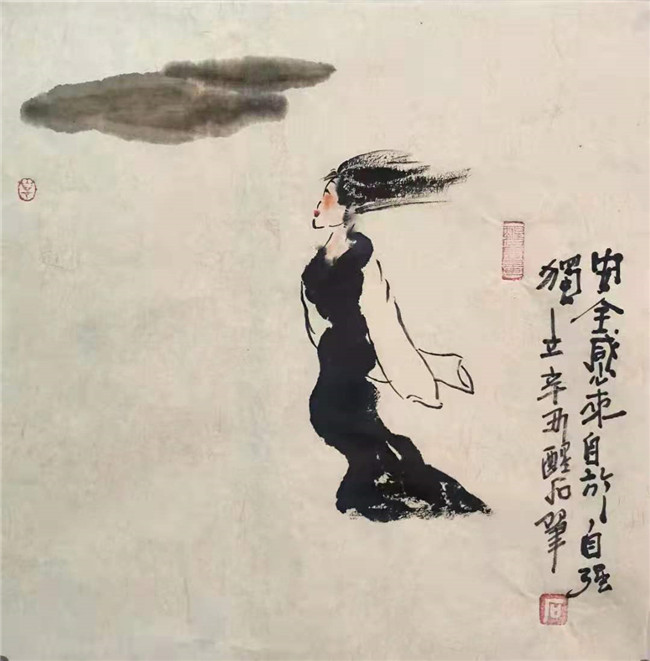 安全感来自於自强
獨立辛丑醒石筆